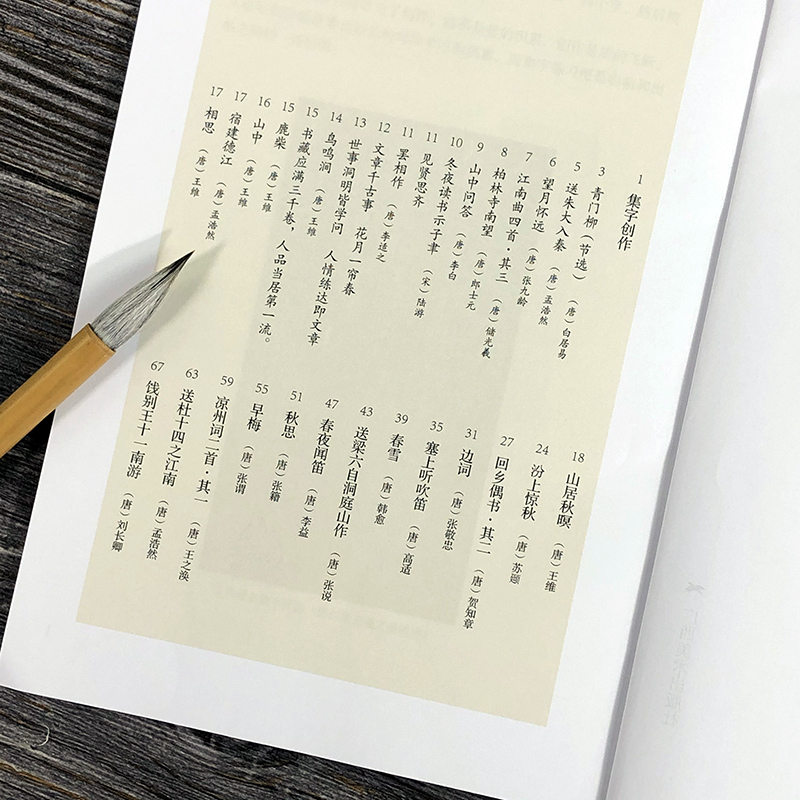 1 集字创作
3 青门柳（节选） （唐）白居易
5 送朱大入秦 （唐）孟浩然
6 望月怀远 （唐）张九龄
7 江南曲四首·其三 （唐）储光羲
8 柏林寺南望 （唐）郎士元
9 山中问答 （唐）李白
10 冬夜读书示子聿 （宋）陆游
11 见贤思齐
11 罢相作 （唐）李适之
12 文章千古事 花月一帘春
13 世事洞明皆学问 人情练达即文章
14 鸟鸣涧 （唐）王维
15 书藏应满三千卷，人品当居第一流。
15 鹿柴 （唐）王维
16 山中 （唐）王维
17 宿建德江 （唐）孟浩然
17 相思 （唐）王维
18 山居秋暝 （唐）王维
24 汾上惊秋 （唐）苏颋
27 回乡偶书·其二 （唐）贺知章
31 边词 （唐）张敬忠
35 塞上听吹笛 （唐）高适
39 春雪 （唐）韩愈
43 送梁六自洞庭山作 （唐）张说
47 春夜闻笛 （唐）李益
51 秋思 （唐）张籍
55 早梅 （唐）张谓
59 凉州词二首·其一 （唐）王之涣
63 送杜十四之江南 （唐）孟浩然
67 饯别王十一南游 （唐）刘长卿